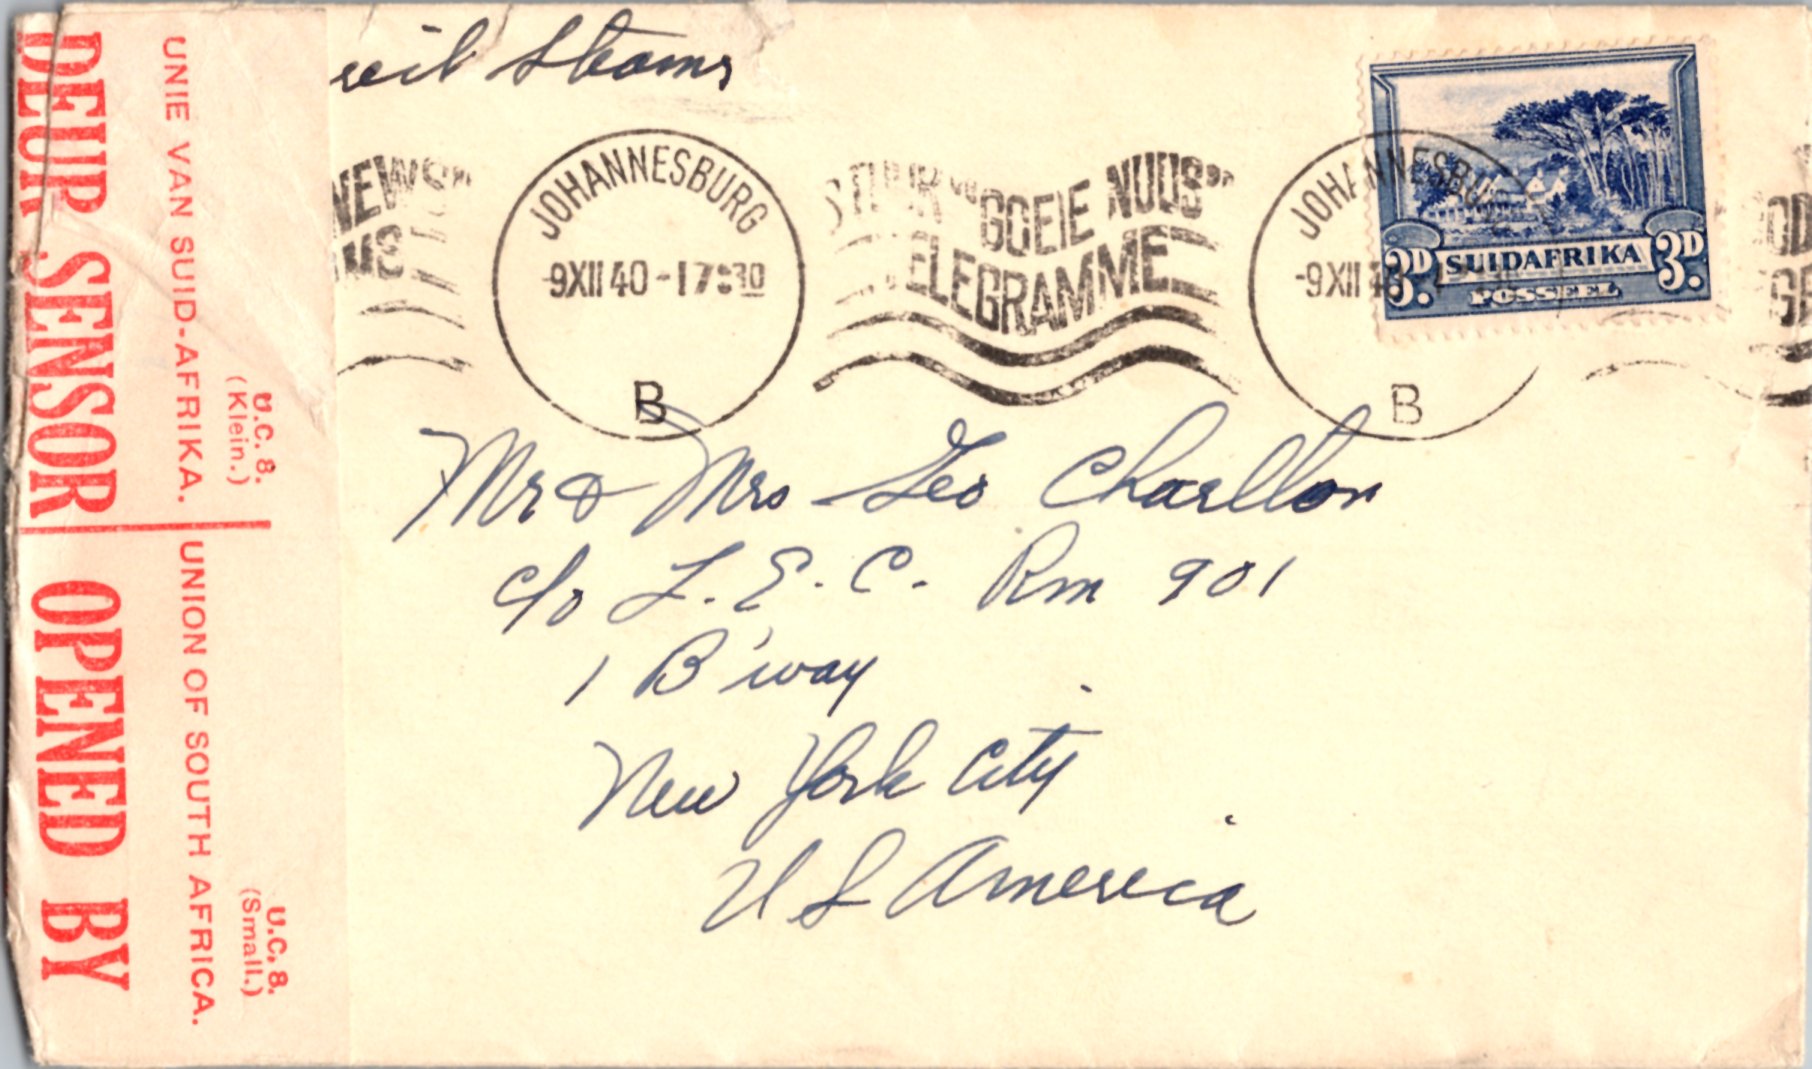 DEUR SENSOR OPENED BY
UNIE VAN SUID-AFRIKA. UNION OF SOUTH AFRICA.
U.C. 8.
(Klein.)
U.C. 8.
(Small.)
NEWS"
JOHANNESBURG
-9XII 40-17:30
B
STUUR "GOEIE NUUS"
TELEGRAMME
JOHANNESBURG
-9XII
B
3D. SUIDAFRIKA 3D.
POSSEEL
Mr & Mrs Geo Charlton
c/o I. E. C. Rm 901
1 B'way
New York City
U S America